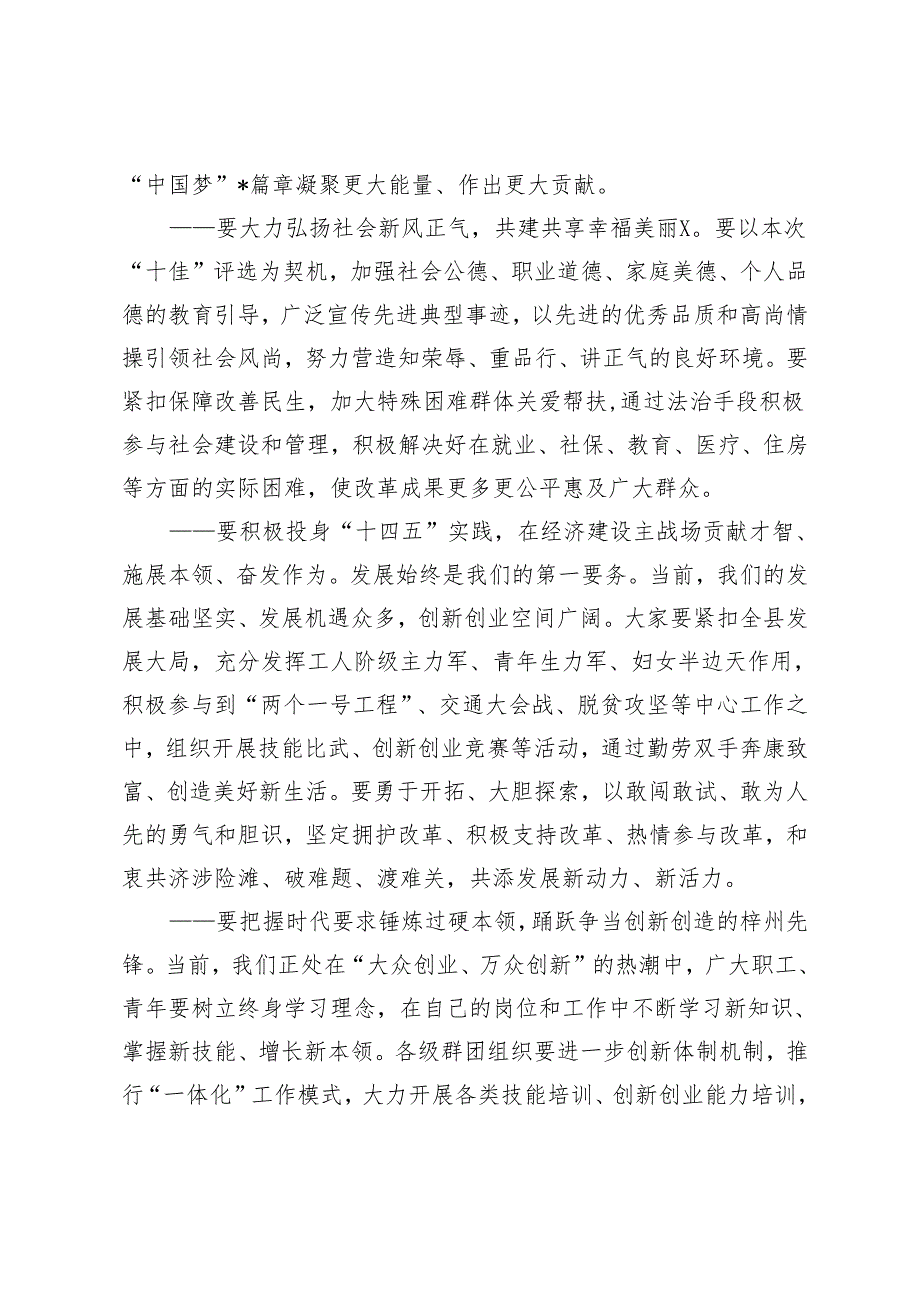 “中国梦”*篇章凝聚更大能量、作出更大贡献。
——要大力弘扬社会新风正气，共建共享幸福美丽X。要以本次
“十佳”评选为契机，加强社会公德、职业道德、家庭美德、个人品
德的教育引导，广泛宣传先进典型事迹，以先进的优秀品质和高尚情
操引领社会风尚，努力营造知荣辱、重品行、讲正气的良好环境。要
紧扣保障改善民生，加大特殊困难群体关爱帮扶,通过法治手段积极
参与社会建设和管理，积极解决好在就业、社保、教育、医疗、住房
等方面的实际困难，使改革成果更多更公平惠及广大群众。
——要积极投身“十四五”实践，在经济建设主战场贡献才智、
施展本领、奋发作为。发展始终是我们的第一要务。当前，我们的发
展基础坚实、发展机遇众多，创新创业空间广阔。大家要紧扣全县发
展大局，充分发挥工人阶级主力军、青年生力军、妇女半边天作用，
积极参与到“两个一号工程”、交通大会战、脱贫攻坚等中心工作之
中，组织开展技能比武、创新创业竞赛等活动，通过勤劳双手奔康致
富、创造美好新生活。要勇于开拓、大胆探索，以敢闯敢试、敢为人
先的勇气和胆识，坚定拥护改革、积极支持改革、热情参与改革，和
衷共济涉险滩、破难题、渡难关，共添发展新动力、新活力。
——要把握时代要求锤炼过硬本领，踊跃争当创新创造的梓州先
锋。当前，我们正处在“大众创业、万众创新”的热潮中，广大职工、
青年要树立终身学习理念，在自己的岗位和工作中不断学习新知识、
掌握新技能、增长新本领。各级群团组织要进一步创新体制机制，推
行“一体化”工作模式，大力开展各类技能培训、创新创业能力培训，